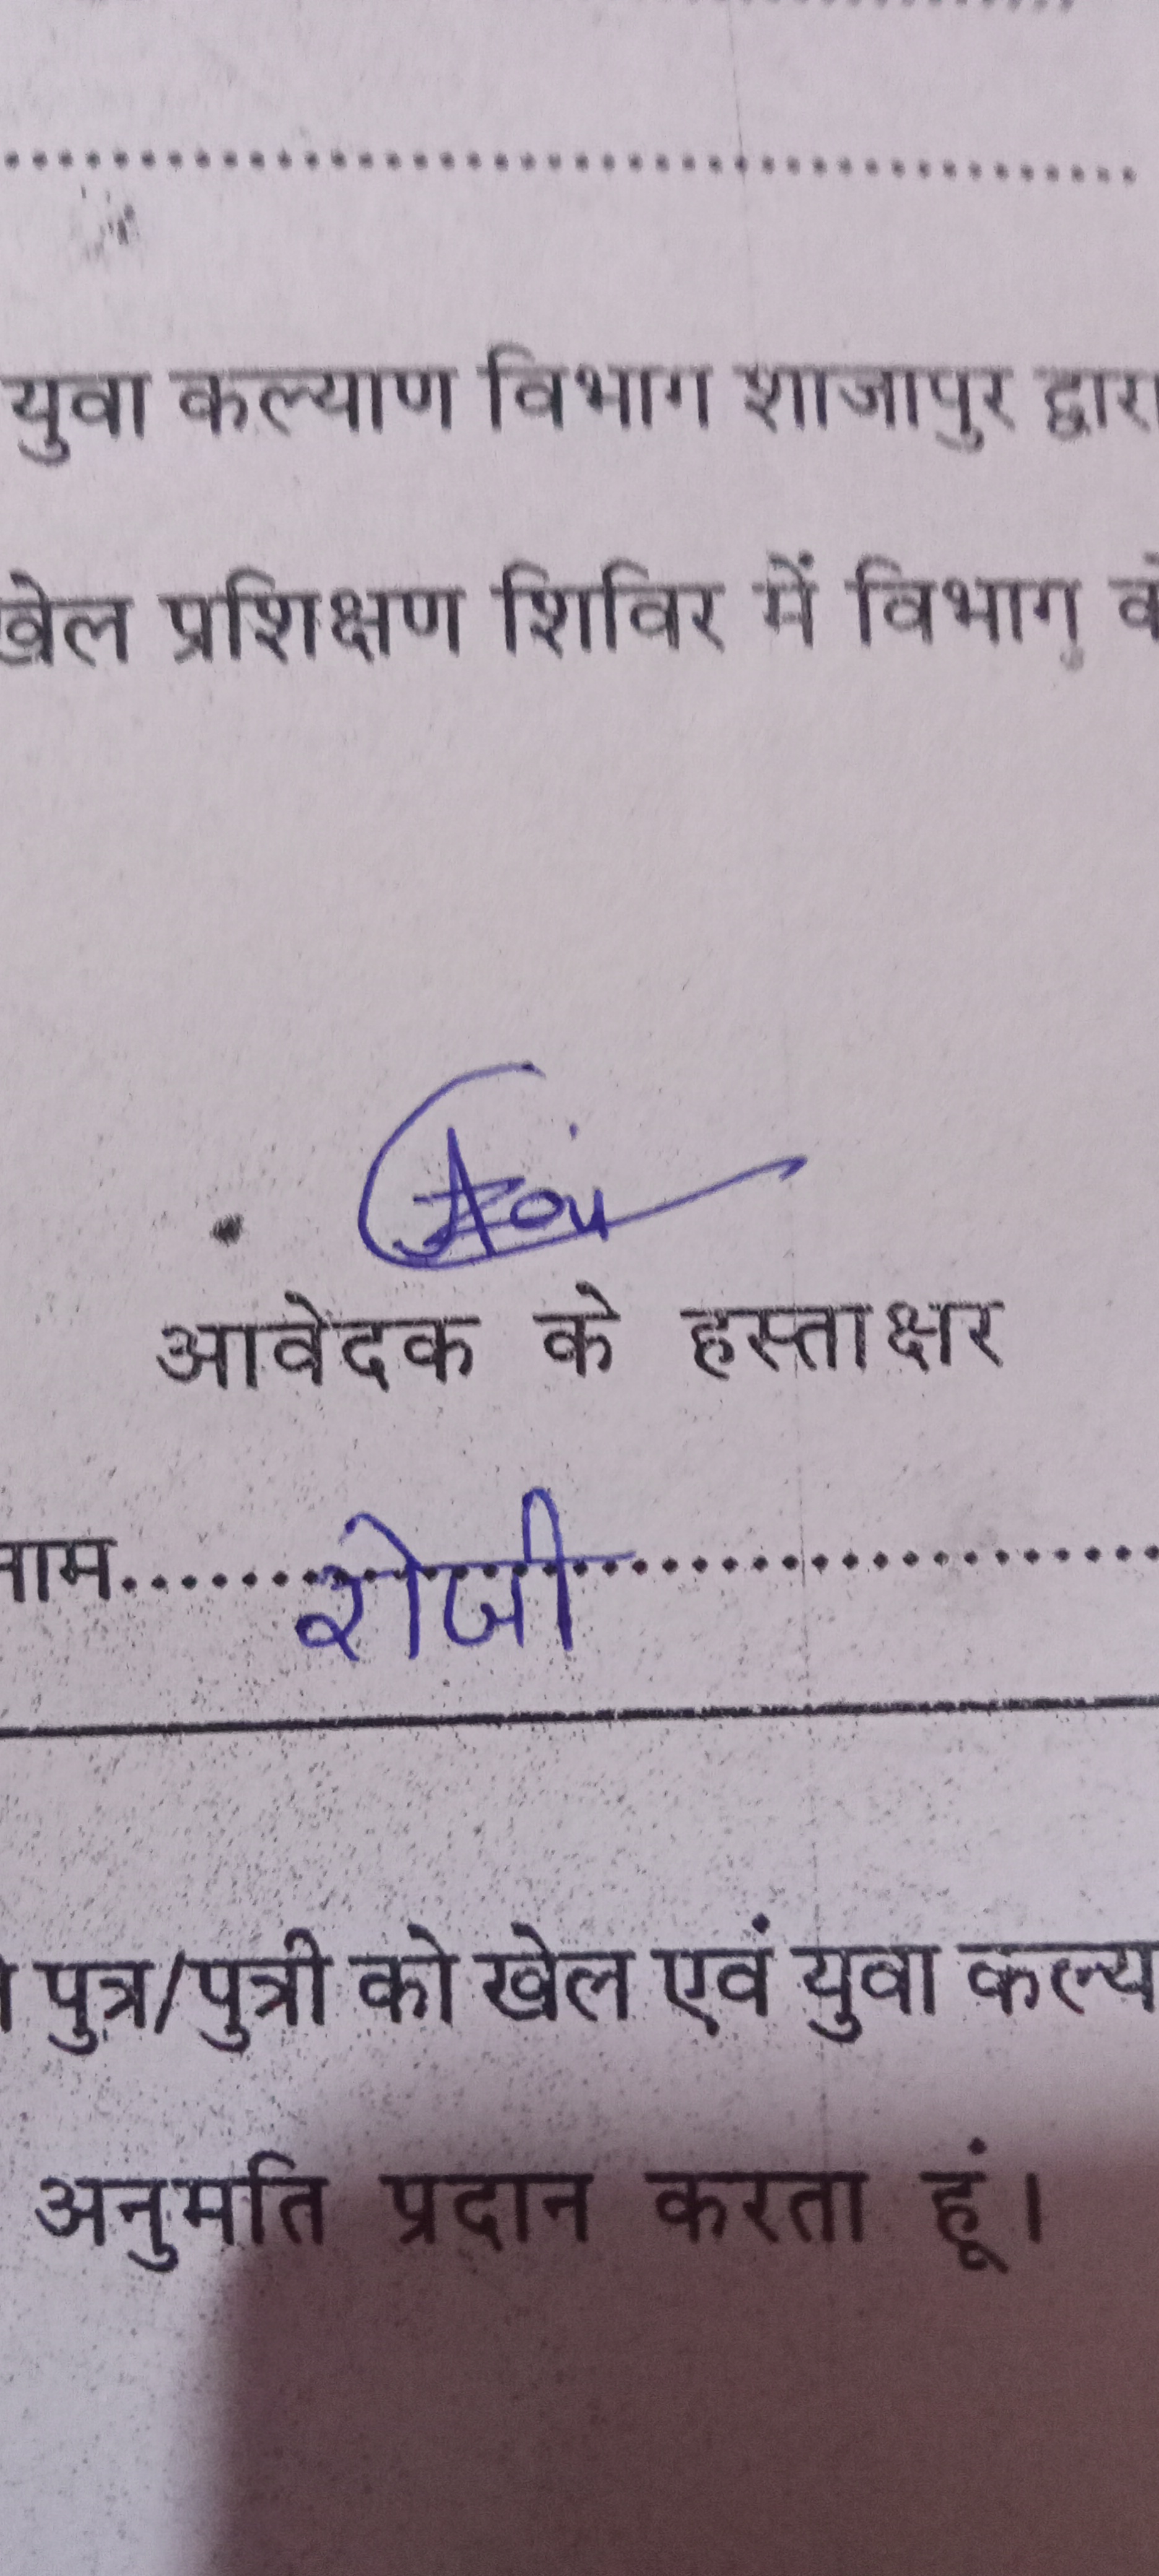 युवा कल्याण विभाग शाजापुर द्वारा
खेल प्रशिक्षण शिविर में विभाग
आवेदक के हस्ताक्षर
नाम.......रोजी...................
पुत्र/पुत्री को खेल एवं युवा कल्य
अनुमति प्रदान करता हूं।